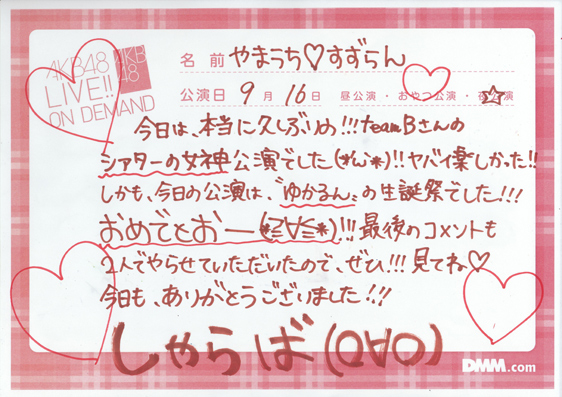 AKB48
LIVE!!
ON DEMAND
AKB
48
名前 やまうち♡すずらん
公演日 9月16日 昼公演・おやつ公演・夜公演
今日は、本当に久しぶりの!!!teamBさんの
シアターの女神公演でした(*´ω`*)!!ヤバイ楽しかった!!
しかも、今日の公演は、“ゆかるん”の生誕祭でした!!!
おめでとおー(*≧∀≦*)!!!最後のコメントも
2人でやらせていただいたので、ぜひ!!!見てね♡
今日も、ありがとうございました!!!
しゃらば(O∀O)
DMM.com